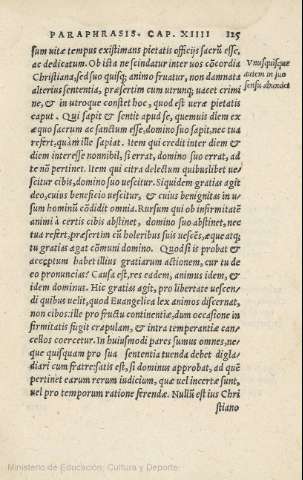 PARAPHRASIS. CAP. XIIII 125
sum uitæ tempus existimans pietatis officijs sacrũ esse,
ac dedicatum. Ob ista ne scindatur inter uos cõcordia
Christiana, sed suo quisq; animo fruatur, non damnata
alterius sententia, præsertim cum utrunq; uacet crimi
ne, & in utroque constet hoc, quod est ueræ pietatis
caput. Qui sapit & sentit apud se, quemuis diem ex
æquo sacrum ac sanctum esse, domino suo sapit, nec tua
refert, quàm ille sapiat. Item qui credit inter diem &
diem interesse nonnihil, si errat, domino suo errat, ad
te nõ pertinet. Item qui citra delectum quibuslibet ue-
scitur cibis, domino suo uescitur. Siquidem gratias agit
deo, cuius beneficio uescitur, & cuius benignitas in u-
sum hominũ cõdidit omnia. Rursum qui ob infirmitatẽ
animi à certis cibis abstinet, domino suo abstinet, nec
tua refert, præsertim cũ holeribus suis uescẽs, æque atq;
tu gratias agat cõmuni domino. Quod si is probat &
acceptum habet illius gratiarum actionem, cur tu de
eo pronuncias? Causa est, res eadem, animus idem, &
idem dominus. Hic gratias agit, pro libertate uescen-
di quibus uelit, quod Euangelica lex animos discernat,
non cibos: ille pro fructu continentiæ, dum occasione in
firmitatis fugit crapulam, & intra temperantiæ can-
cellos coercetur. In huiusmodi pares sumus omnes, ne-
que quisquam pro sua sententia tuenda debet digla-
diari cum fratre: satis est, si dominus approbat, ad quẽ
pertinet earum rerum iudicium, quæ uel incertæ sunt,
uel pro temporum ratione ferendæ. Nullũ est ius Chri
stiano
Vnusquisque
autem in suo
sensu abundet
Ministerio de Educación, Cultura y Deporte.